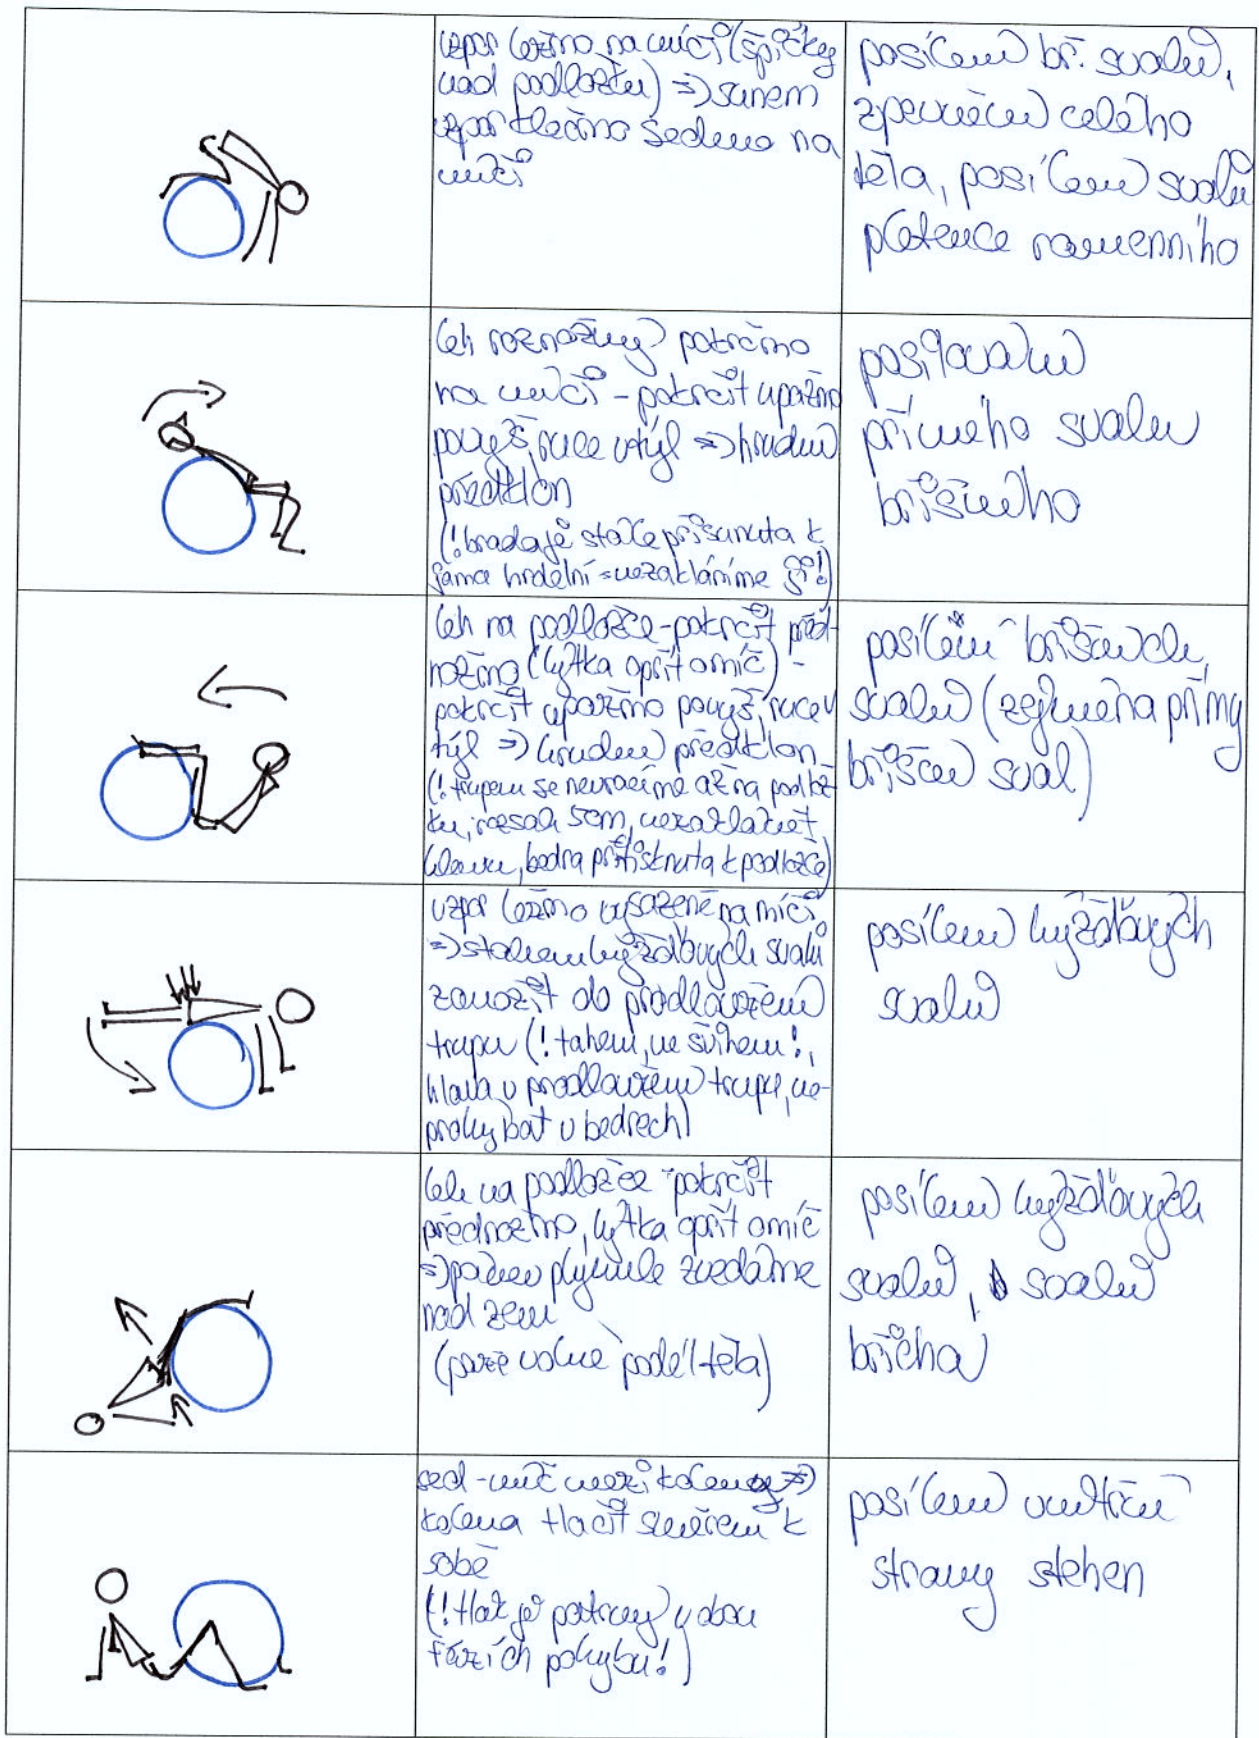 vzpor ležmo na míči (špičky
nad podložku) => sunem
vzpor klečmo sedmo na
míči
posílení bř. svalů,
zpevnění celého
těla, posílení svalů
pletence ramenního
leh roznožný pokrčmo
na míči - pokrčit upažmo
povýš, ruce v týl => hrudní
předklon
(! brada je stále přisunuta k
jamce hrdelní = nezakláníme ji!)
posilování
přímého svalu
břišního
leh na podložce - pokrčit před-
nožmo (lýtka opřít o míč) -
pokrčit upažmo povýš, ruce v
týl => hrudní předklon
(! trupem se nevracíme až na podlož-
ku, rozsah 5cm, nezaklánět
hlavu, bedra přitisknuta k podložce)
posílení břišních
svalů (zejména přímý
břišní sval)
vzpor ležmo vysazeně na míči
=> stahem hýžďových svalů
zanožit do prodloužení
trupu (! tahem, ne švihem!,
hlava v prodloužení trupu, ne-
prohýbat v bedrech)
posílení hýžďových
svalů
leh na podložce - pokrčit
přednožmo, lýtka opřít o míč
=> pánev plynule zvedáme
nad zem
(paže volně podél těla)
posílení hýžďových
svalů, svalů
břicha
sed - míč mezi koleny =>
kolena tlačit směrem k
sobě
(! tlak je patrný v obou
fázích pohybu!)
posílení vnitřní
strany stehen